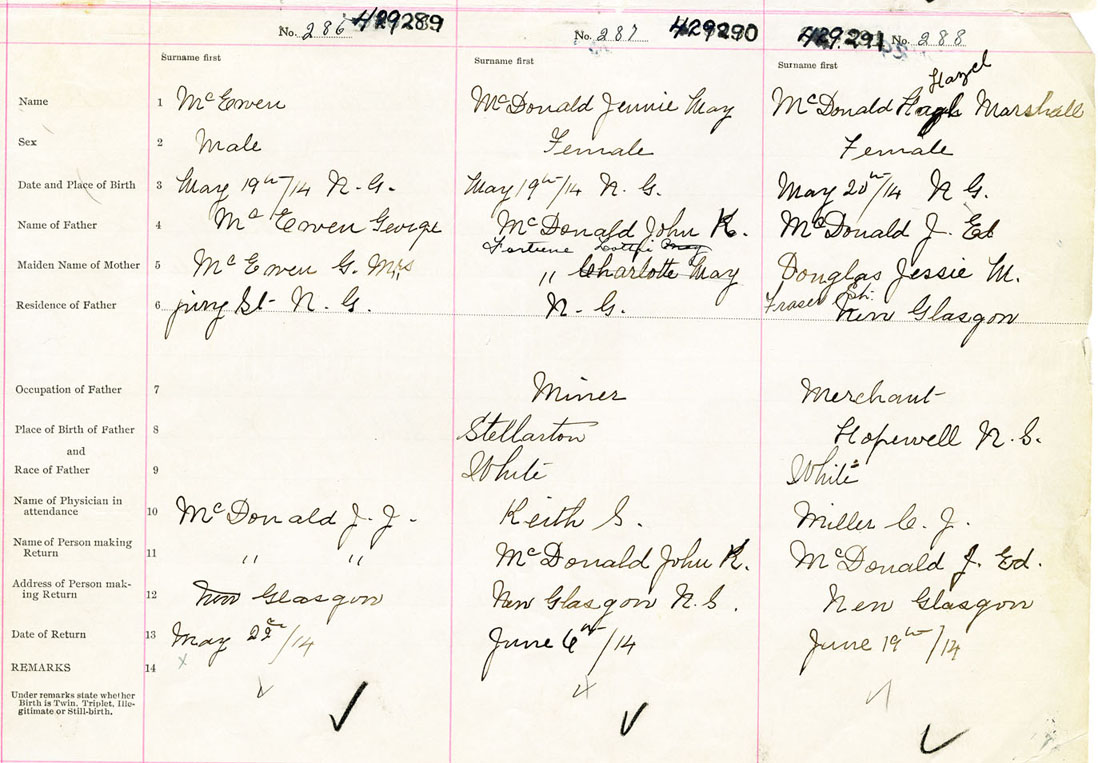 No. 286 429289 No. 287 429290 429291 No. 288
Surname first Surname first Surname first
Hazel
Name 1 McEwen McDonald Jennie May McDonald Marshall
Sex 2 Male Female Female
Date and Place of Birth 3 May 19th/14 N. G. May 19th/14 N. G. May 20th/14 N G.
Name of Father 4 McEwen George McDonald John K. McDonald J. Ed
Fortune Lottie May
Maiden Name of Mother 5 McEwen G. Mrs " Charlotte May Douglas Jessie M.
Fraser
Residence of Father 6 St N. G. N. G. New Glasgow
Occupation of Father 7 Miner Merchant
Place of Birth of Father 8 Stellarton Hopewell N. S.
and
Race of Father 9 White White
Name of Physician in
attendance 10 McDonald J. J. Keith S. Miller C. J.
Name of Person making
Return 11 " " McDonald John K. McDonald J. Ed.
Address of Person mak-
ing Return 12 New Glasgow New Glasgow N. S. New Glasgow
Date of Return 13 May 22nd/14 June 6th/14 June 19th/14
REMARKS 14
Under remarks state whether
Birth is Twin, Triplet, Ille-
gitimate or Still-birth.